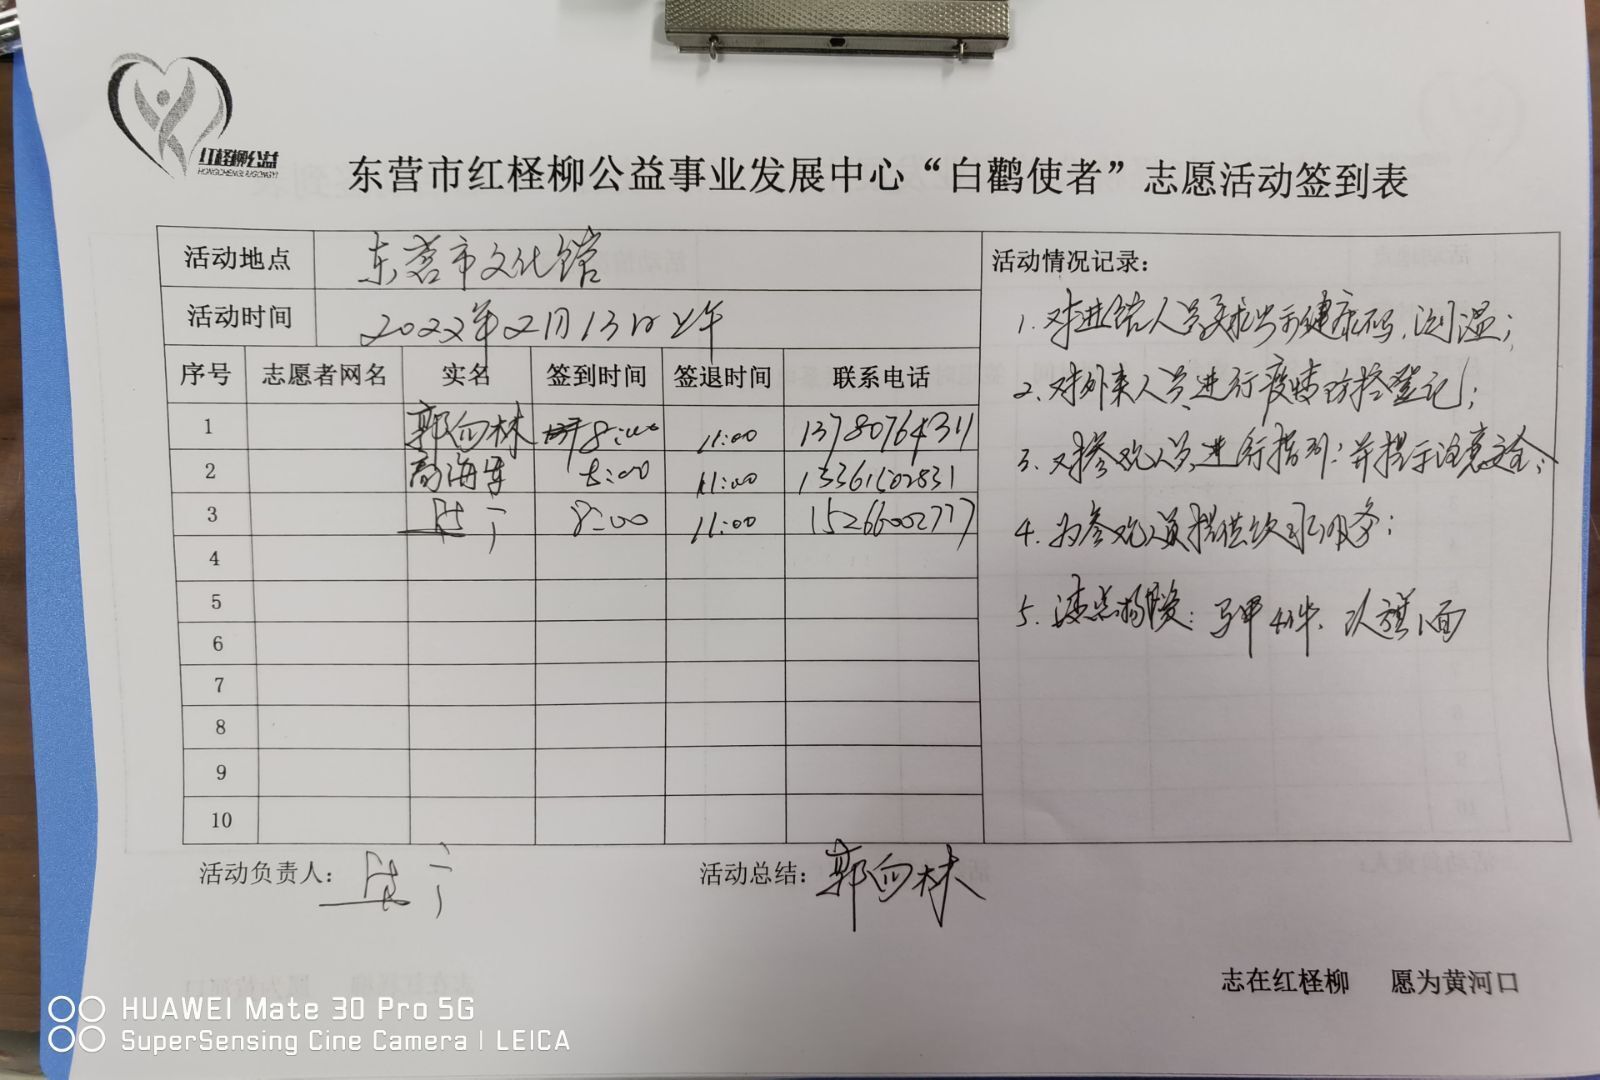 红柽柳公益
HONGCHENGLIUGONGYI
东营市红柽柳公益事业发展中心“白鹳使者”志愿活动签到表
活动地点 东营市文化馆
活动时间 2022年2月13日上午
序号 志愿者网名 实名 签到时间 签退时间 联系电话
1 郭向林 8:00 11:00 13780764311
2 海军 8:00 11:00 13361502831
3 8:00 11:00 15266002777
4
5
6
7
8
9
10
活动情况记录：
1. 对进馆人员要求出示健康码，测温；
2. 对外来人员进行疫情防控登记；
3. 对参观人员进行指引；并提示注意安全；
4. 为参观人员提供饮水服务；
5. 物资：马甲4件、队旗1面
活动负责人：
活动总结：郭向林
志在红柽柳 愿为黄河口
HUAWEI Mate 30 Pro 5G
SuperSensing Cine Camera | LEICA